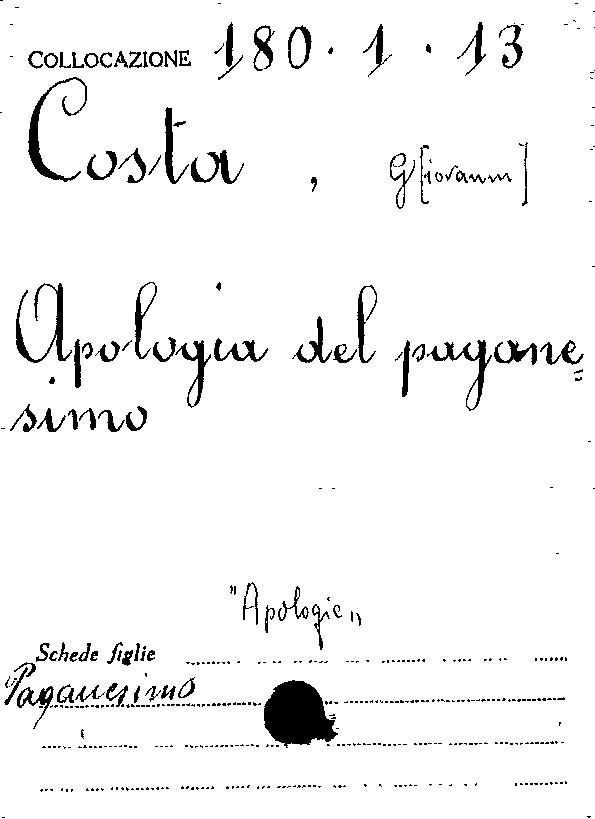 COLLOCAZIONE 180.1.13
Costa, G[iovanni]
Apologia del pagane=
simo
"Apologie"
Schede figlie
Paganesimo